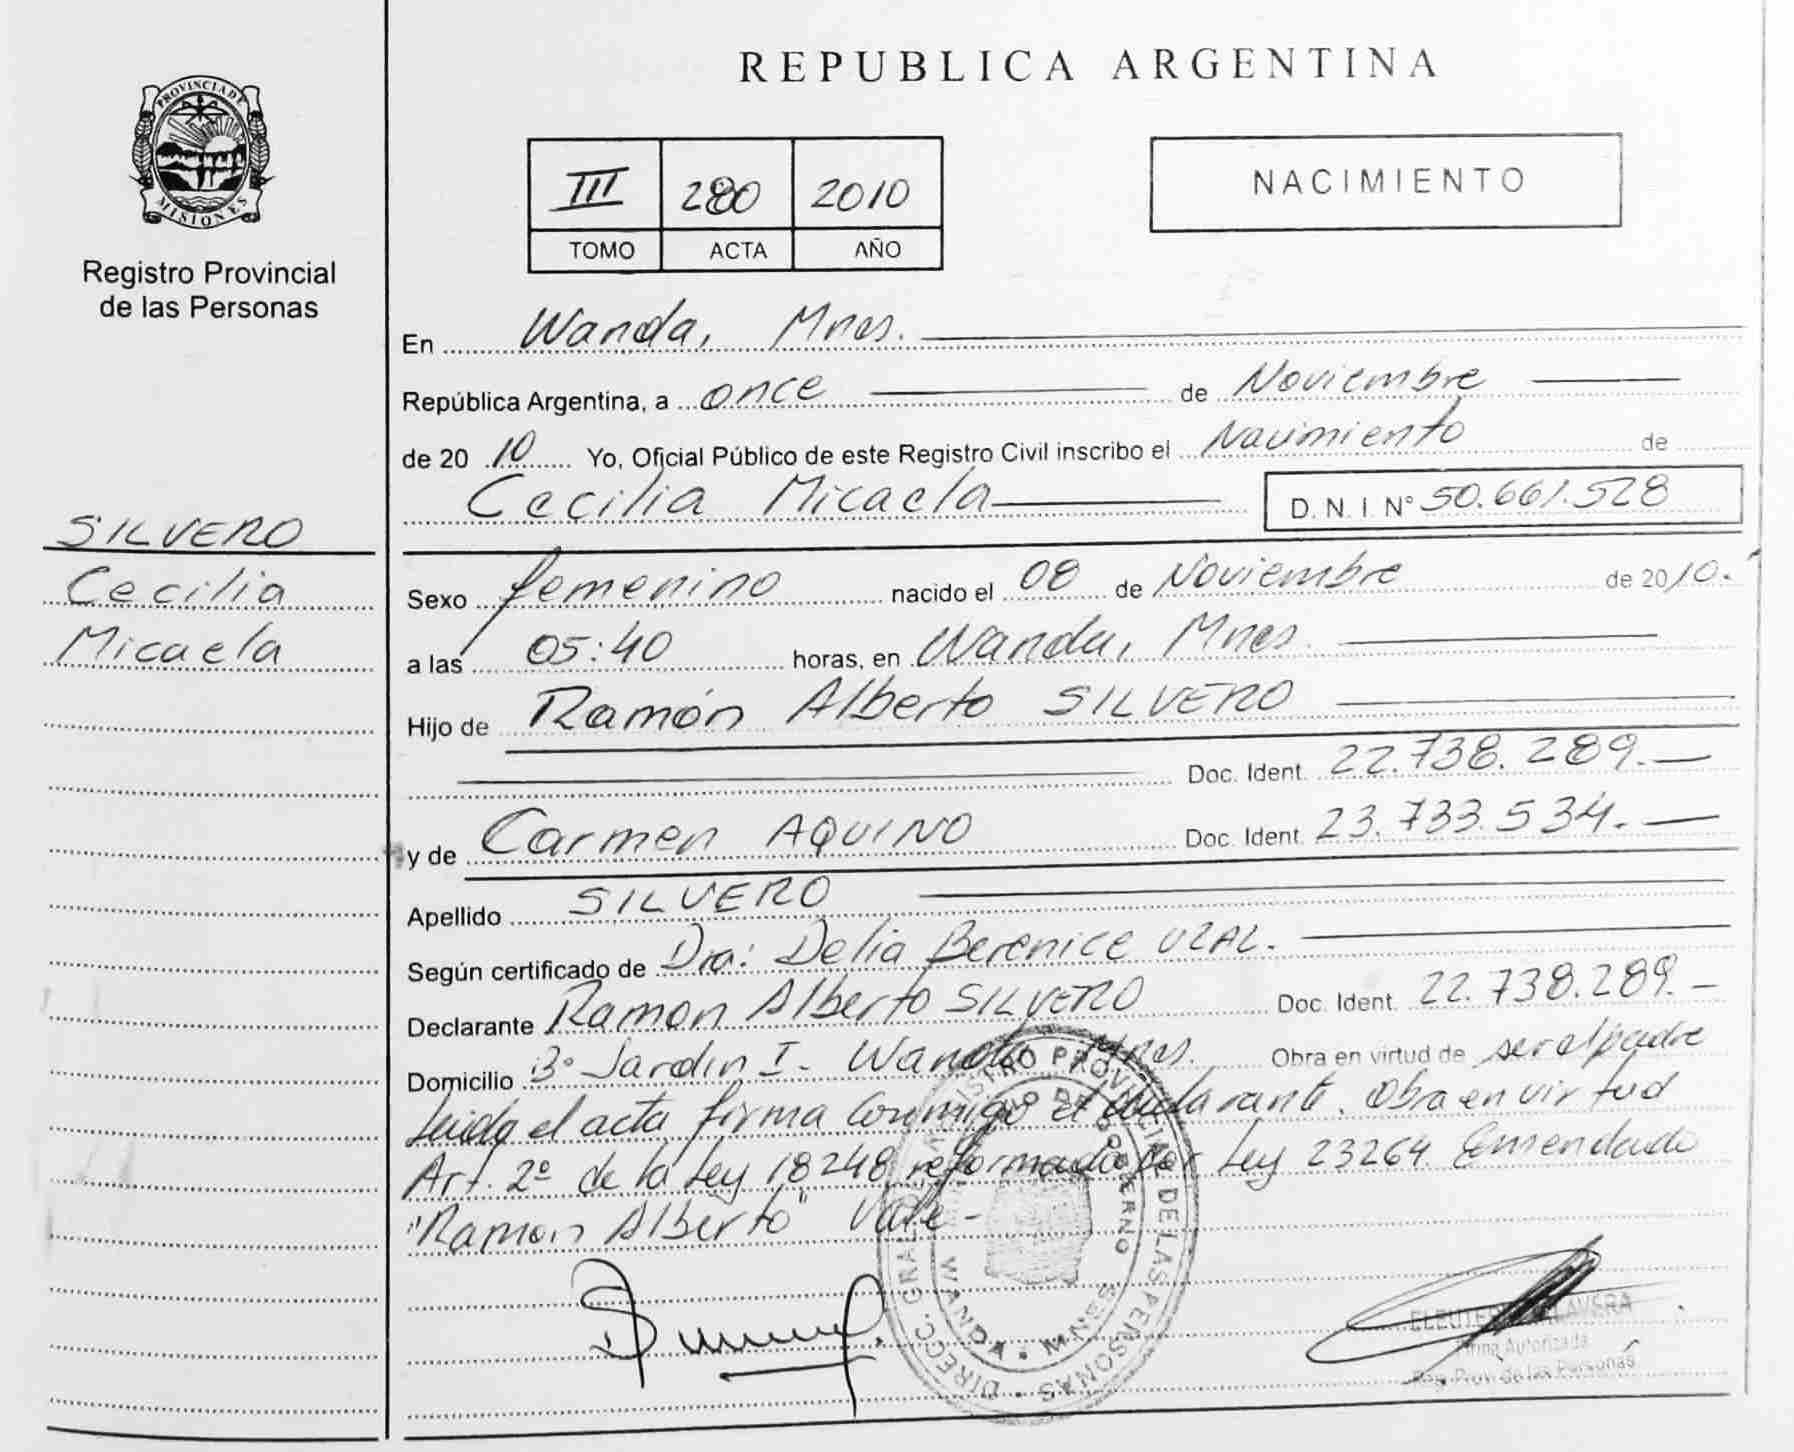 PROVINCIA DE
MISIONES
Registro Provincial
de las Personas
SILVERO
Cecilia
Micaela
REPUBLICA ARGENTINA
III 280 2010
TOMO ACTA AÑO
NACIMIENTO
En Wanda, Mnes.
República Argentina, a once de Noviembre
de 2010 Yo, Oficial Público de este Registro Civil inscribo el Nacimiento de
Cecilia Micaela D. N. I. N° 50.661.528
Sexo femenino nacido el 08 de Noviembre de 2010.
a las 05:40 horas, en Wanda, Mnes.
Hijo de Ramón Alberto SILVERO
Doc. Ident. 22.738.289.—
y de Carmen AQUINO Doc. Ident. 23.733.534.—
Apellido SILVERO
Según certificado de Dra: Delia Berenice UZAL.
Declarante Ramon Alberto SILVERO Doc. Ident. 22.738.289.—
Domicilio B° Jardin I - Wanda Mnes. Obra en virtud de ser el padre
Leida el acta firma conmigo el declarante. Obra en virtud
Art. 2º de la Ley 18248 reformada por Ley 23264 Emendado
"Ramon Alberto" Vale -
DIRECC. GRAL. DE REGISTRO PROVINCIAL DE LAS PERSONAS
DE GOBIERNO
WANDA • MNES
Firma Autorizada
Reg. Prov. de las Personas